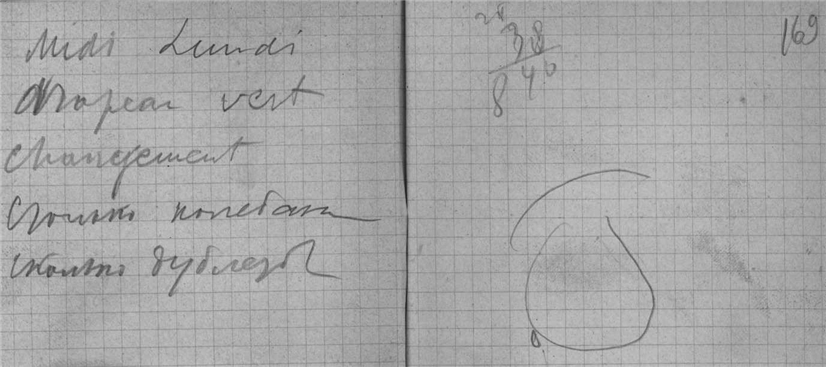 Midi Lundi
Drapeau vert
Changement
Сколько колебан
Сколько дублезовъ
38
840
169